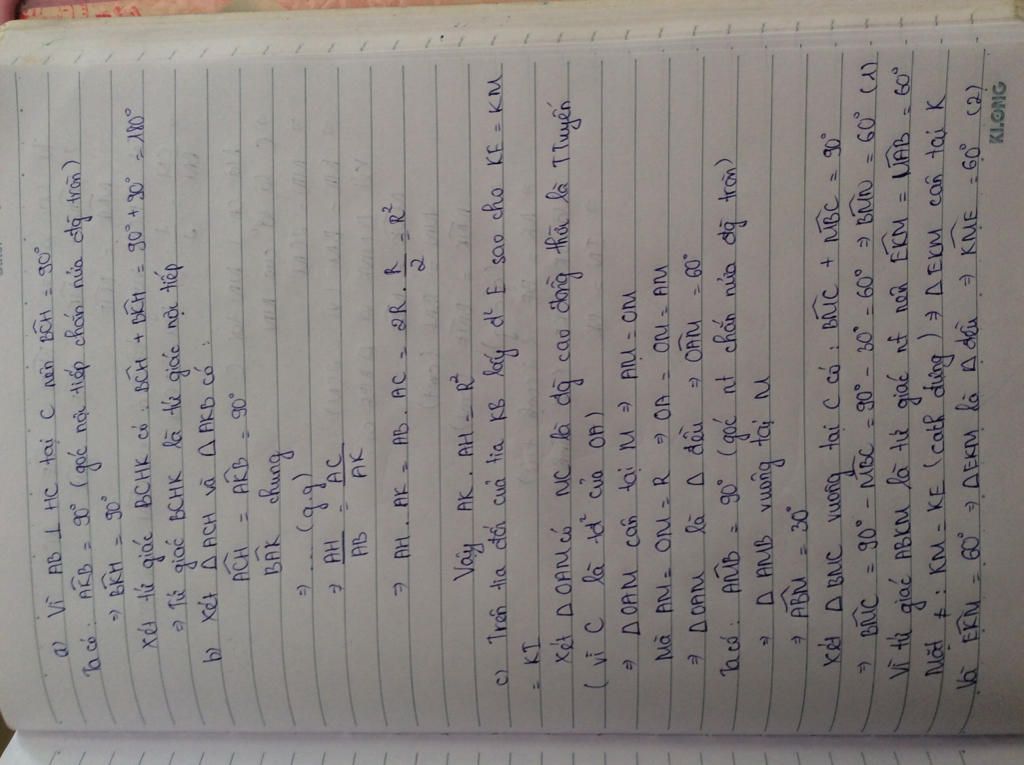 a) Vì AB ⊥ HC tại C nên BĈH = 90°
Ta có: AK̂B = 90° (góc nội tiếp chắn nửa đg tròn)
⇒ BK̂H = 90°
Xét tứ giác BCHK có: BĈH + BK̂H = 90° + 90° = 180°
⇒ Tứ giác BCHK là tứ giác nội tiếp
b) Xét Δ ACH và Δ AKB có:
AĈH = AK̂B = 90°
BÂK chung
⇒ ... (g.g)
⇒ AH/AB = AC/AK
⇒ AH . AK = AB . AC = 2R . R/2 = R²
Vậy AK . AH = R²
c) Trên tia đối của tia KB lấy đ² E sao cho KE = KM
= KI
Xét Δ OAM có MC là đg cao đồng thời là TTuyến
(vì C là tđ² của OA)
⇒ Δ OAM cân tại M ⇒ AM = OM
Mà AM = OM = R ⇒ OA = OM = AM
⇒ Δ OAM là Δ đều ⇒ OÂM = 60°
Ta có: AM̂B = 90° (góc nt chắn nửa đg tròn)
⇒ Δ AMB vuông tại M
⇒ AB̂M = 30°
Xét Δ BMC vuông tại C có: BM̂C + MB̂C = 90°
⇒ BM̂C = 90° - MB̂C = 90° - 30° = 60° ⇒ BM̂N = 60° (1)
Vì tứ giác ABKM là tứ giác nt nên EK̂M = MÂB = 60°
Mặt ≠ : KM = KE (cách dựng) ⇒ Δ EKM cân tại K
Và EK̂M = 60° ⇒ Δ EKM là Δ đều ⇒ KM̂E = 60° (2)
KLONG